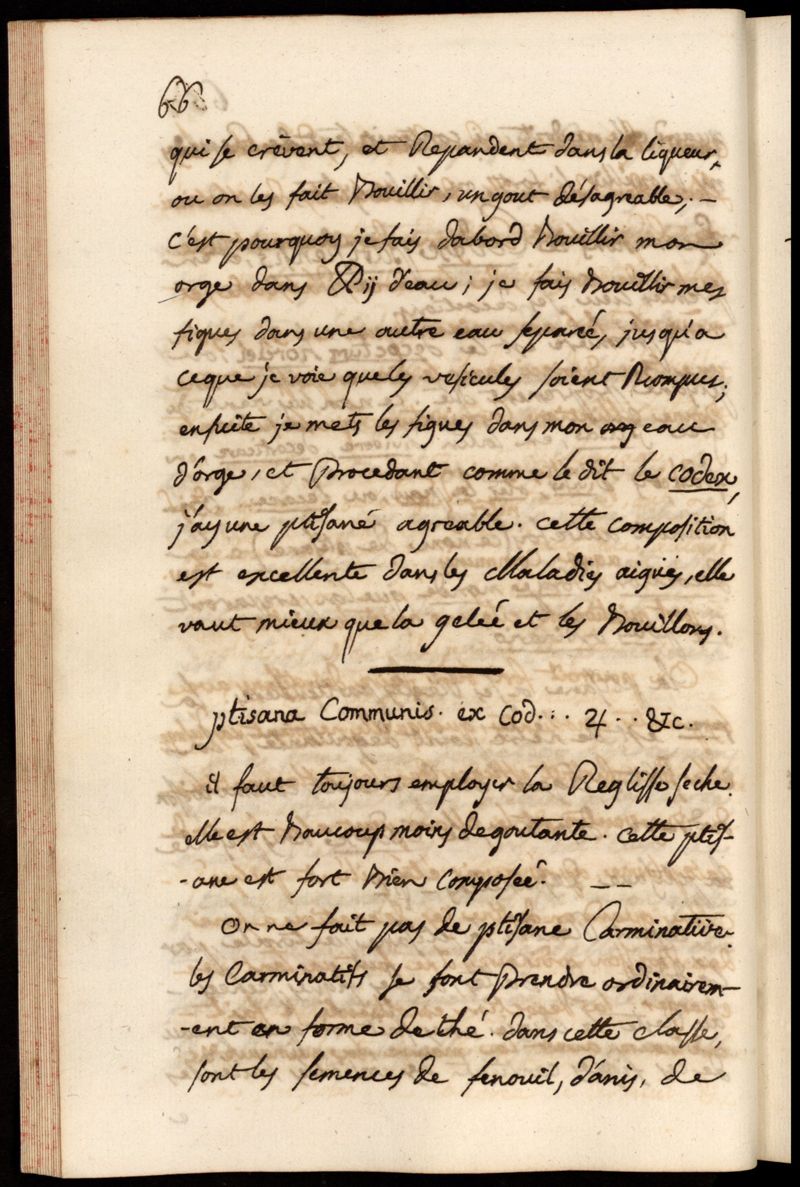 66.
qui se crévent, et Repandent dans la liqueur,
ou on les fait Bouillir, un gout désagreable; –
C'est pourquoy je fais dabord Bouillir mon
orge dans ℔ij d'eau; je fais Bouillir mes
figues dans une autre eau separeé, jusqu'a
ceque je voie que les vesicules soient Rompues;
ensuite je mets les figues dans mon eau
d'orge, et Procedant comme le dit le codex,
j'ay une ptisane agreable. cette composition
est excellente dans les Maladies aigues, elle
vaut mieux que la geleé et les Bouillons.
ptisana Communis. ex Cod... ♃.. &c.
il faut toujours employer la Reglisse seche.
elle est Baucoup moins degoutante. cette ptis-
-ane est fort Bien composeé. – –
On ne fait pas de ptisane Carminative.
les Carminatifs se font Prendre ordinairem-
-ent en forme de thé. dans cette classe,
sont les semences de fenouil, d'anis, de